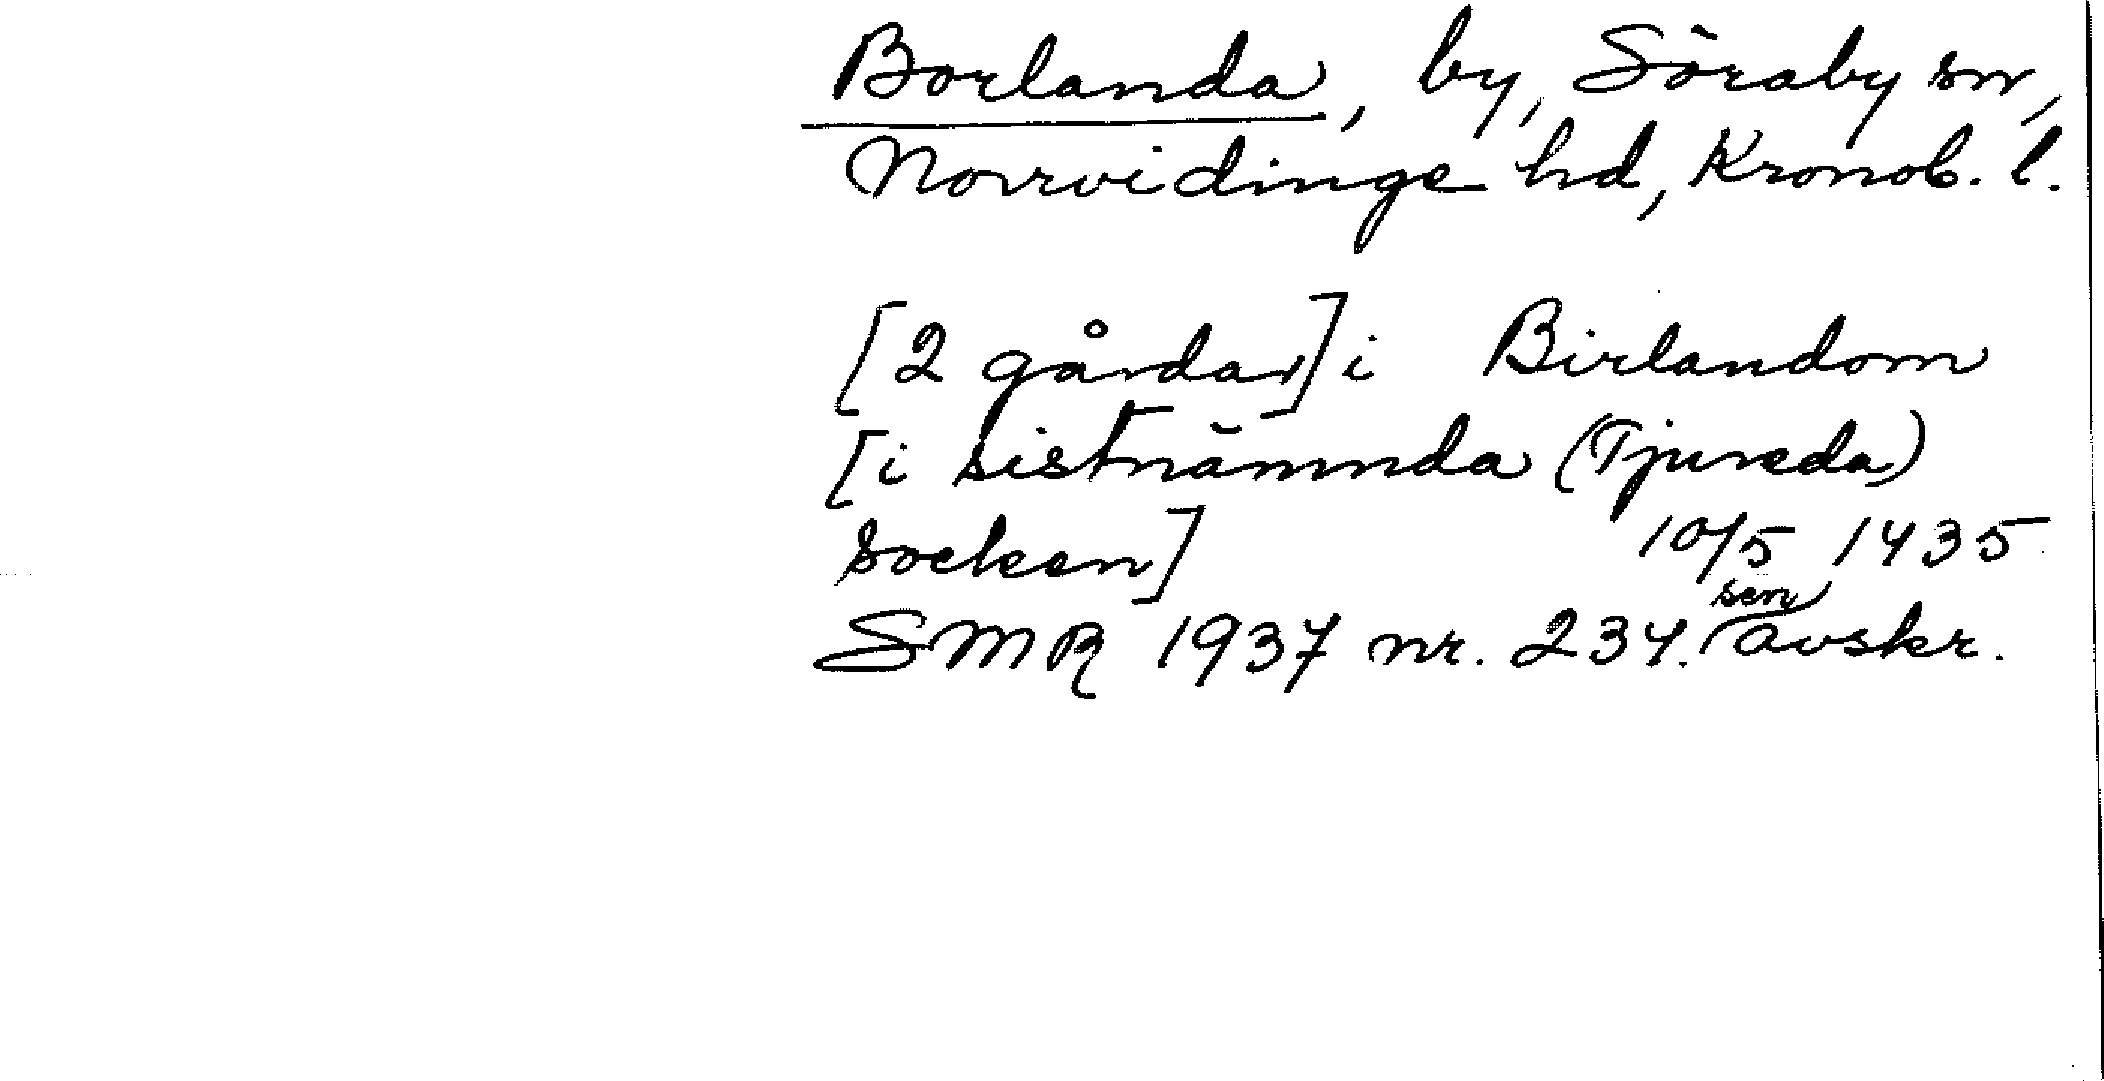 Borlanda, by, Söraby sn,
Norrvidinge hd, Kronob. l.
[2 gårdar] i Birlandom
[i sistnämnda (Tjureda)
socken] 10/5 1435
SMR 1937 nr. 234. sen avskr.